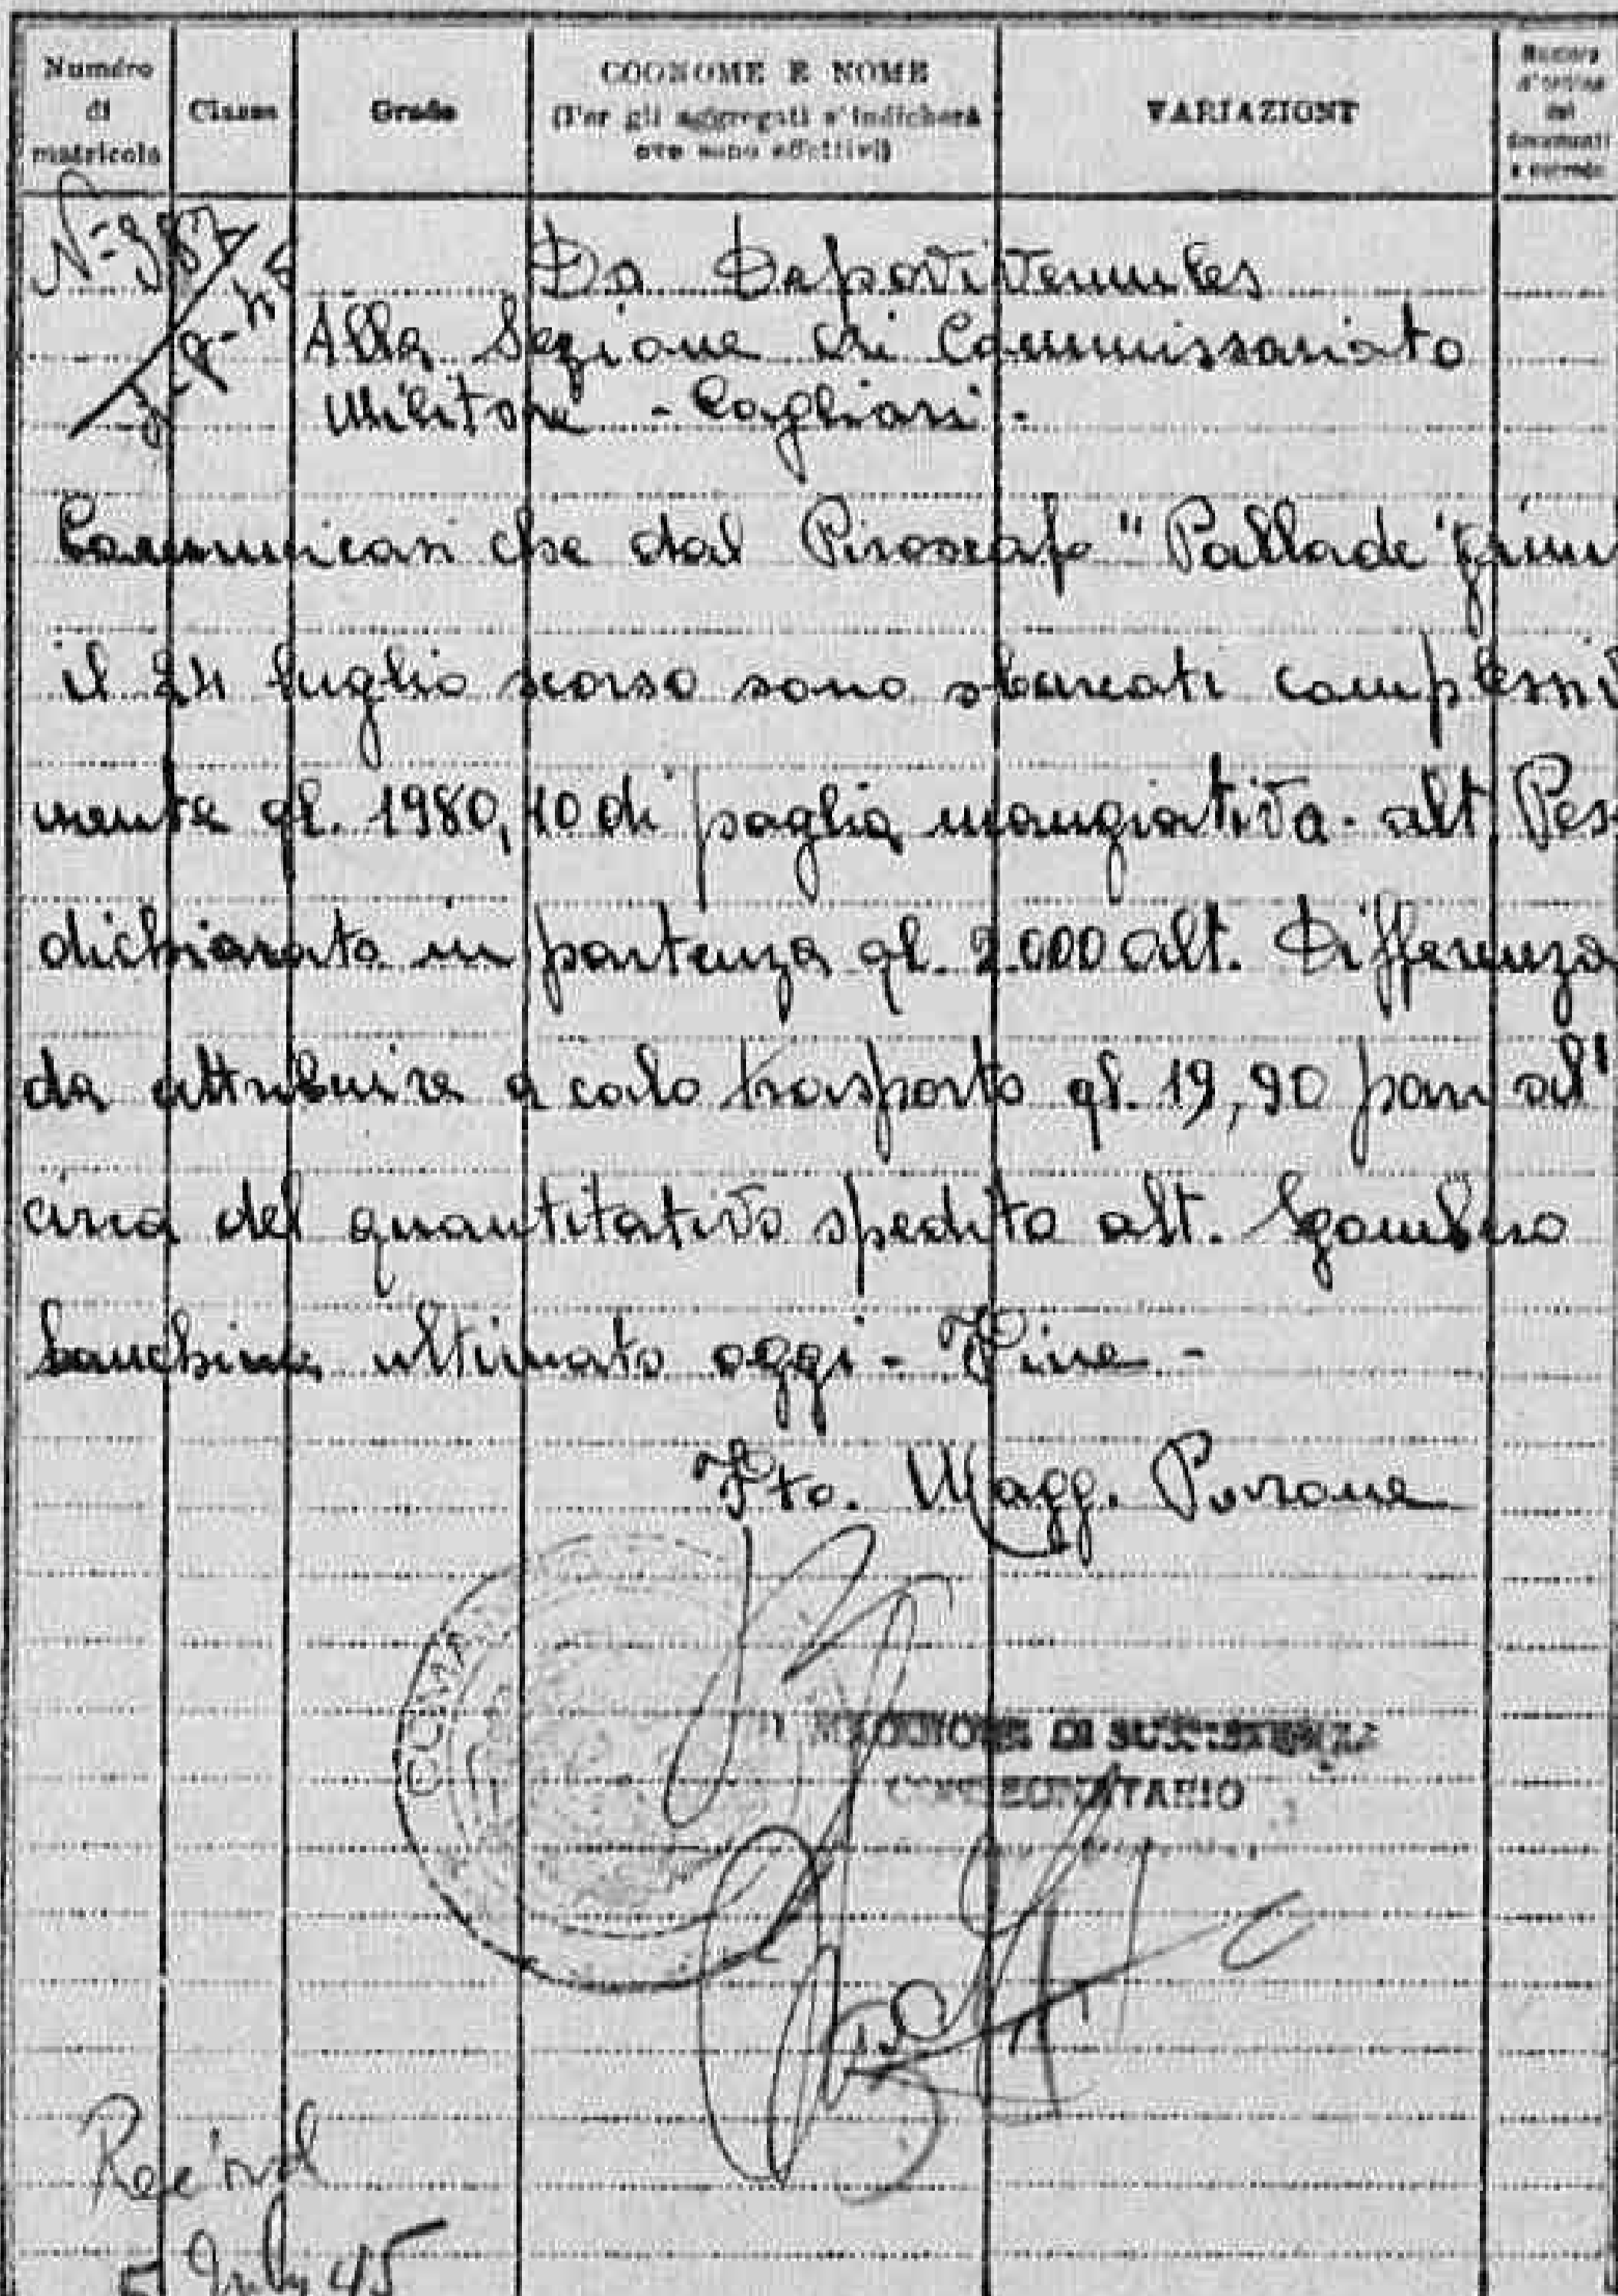 Numero di matricola
Classe
Grado
COGNOME E NOME
(Per gli aggregati s'indicherà
ove sono effettivi)
VARIAZIONI
Numero
d'ordine
dei
documenti
a corredo
Da Depovitvermiles
Alla Sezione di Commissariato
Militare - Cagliari -
Comunicasi che dal Piroscafo "Pallade"
il 24 luglio scorso sono sbarcati complessi
mente ql. 1980,10 di paglia mangiativa - alt. Pes
dichiarato in partenza ql. 2.000 alt. Differenza
da attribuire a calo trasporto ql. 19,90 pari all'
circa del quantitativo spedito alt. Sgombero
banchina ultimato oggi - Fine -
Fto. Magg. Pirrone
DI SUSSISTENZA
CONSEGNATARIO
Rec'ved
5 July 45